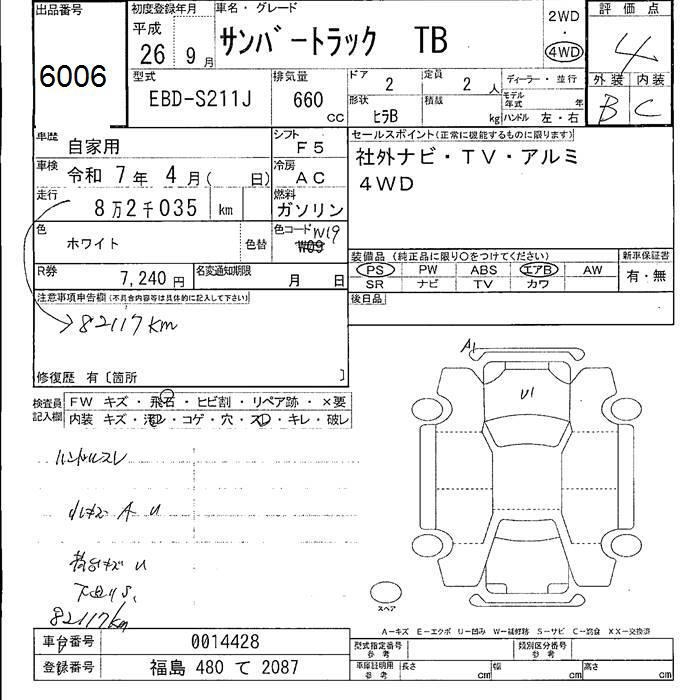 出品番号
6006
初度登録年月
平成
26 9 月
車名・グレード
サンバートラック TB
2WD
4WD
評価点
4
外装 内装
B C
型式
EBD-S211J
排気量
660
CC
ドア
2
定員
2 人
ディーラー・並行
モデル年式 年
形状
ヒラB
積載
kg
ハンドル 左・右
車歴
自家用
シフト
F5
車検
令和 7 年 4 月( 日)
冷房
AC
走行
8万2千035 km
燃料
ガソリン
色
ホワイト
色替
色コード W19
W09
R券
7,240 円
名変通知期限
月 日
セールスポイント(正常に機能するものに限ります)
社外ナビ・TV・アルミ
4WD
装備品(純正品に限り○をつけてください)
PS PW ABS エアB AW
SR ナビ TV カワ
新車保証書
有・無
後日品
注意事項申告欄(不具合内容等は具体的に記入して下さい)
→82117km
修復歴 有〔箇所 〕
検査員記入欄
FW キズ・飛石・ヒビ割・リペア跡・×要
内装 キズ・汚レ・コゲ・穴・スレ・キレ・破レ
ハンドルスレ
小キズ A U
荷台キズ U
下回りS、
82117km
A1
U1
スペア
A−キズ E−エクボ U−凹み W−補修跡 S−サビ C−腐食 XX−交換済
車台番号
0014428
登録番号
福島 480 て 2087
型式指定番号
参考
類別区分番号
参考
車庫証明用
参考
長さ cm
幅 cm
高さ cm